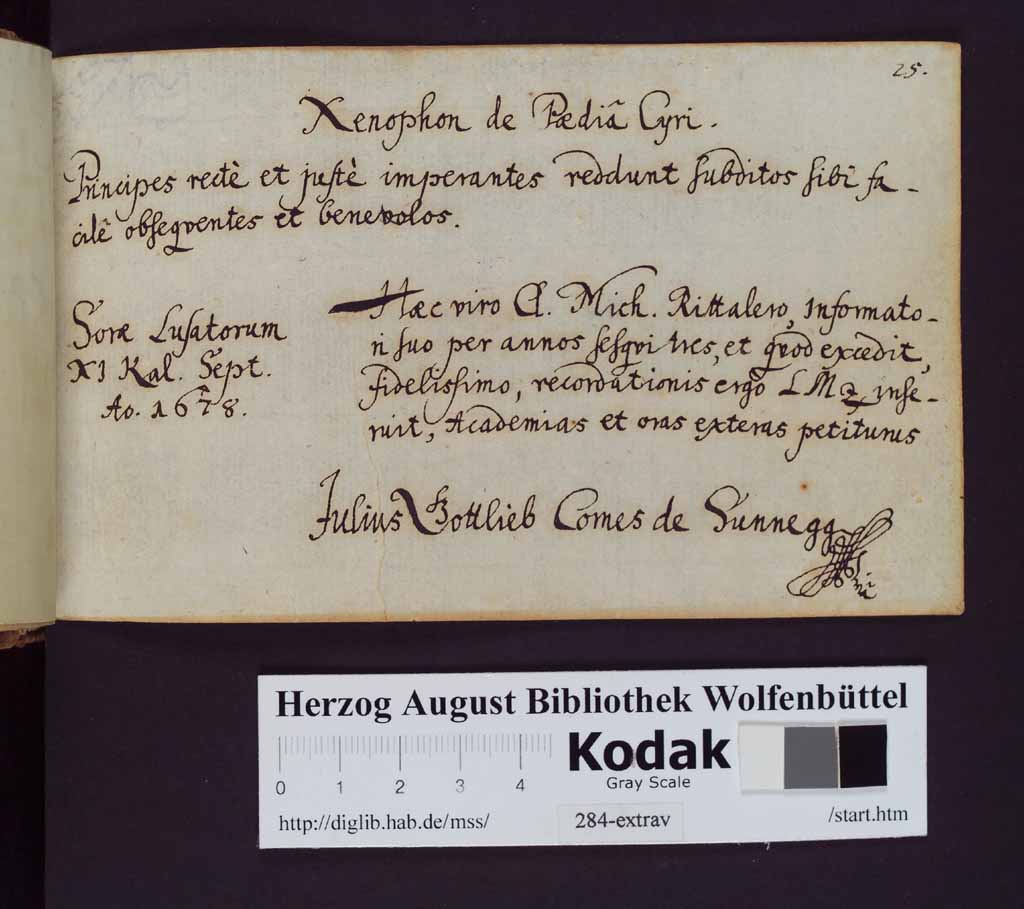 25.
Xenophon de Pædiâ Cyri.
Principes rectè et justè imperantes reddunt subditos sibi fa-
cilè obseqventes et benevolos.
Soræ Lusatorum
XI Kal. Sept.
Ao. 1678.
Hæc viro Cl. Mich. Rittalero, Informato-
ri suo per annos sesqvi tres, et qvod excedit,
fidelissimo, recordationis ergò LMq inse-
ruit, Academias et oras exteras petiturus
Julius Gottlieb Comes de Sunnegg
Herzog August Bibliothek Wolfenbüttel
Kodak
Gray Scale
0 1 2 3 4
http://diglib.hab.de/mss/ 284-extrav /start.htm